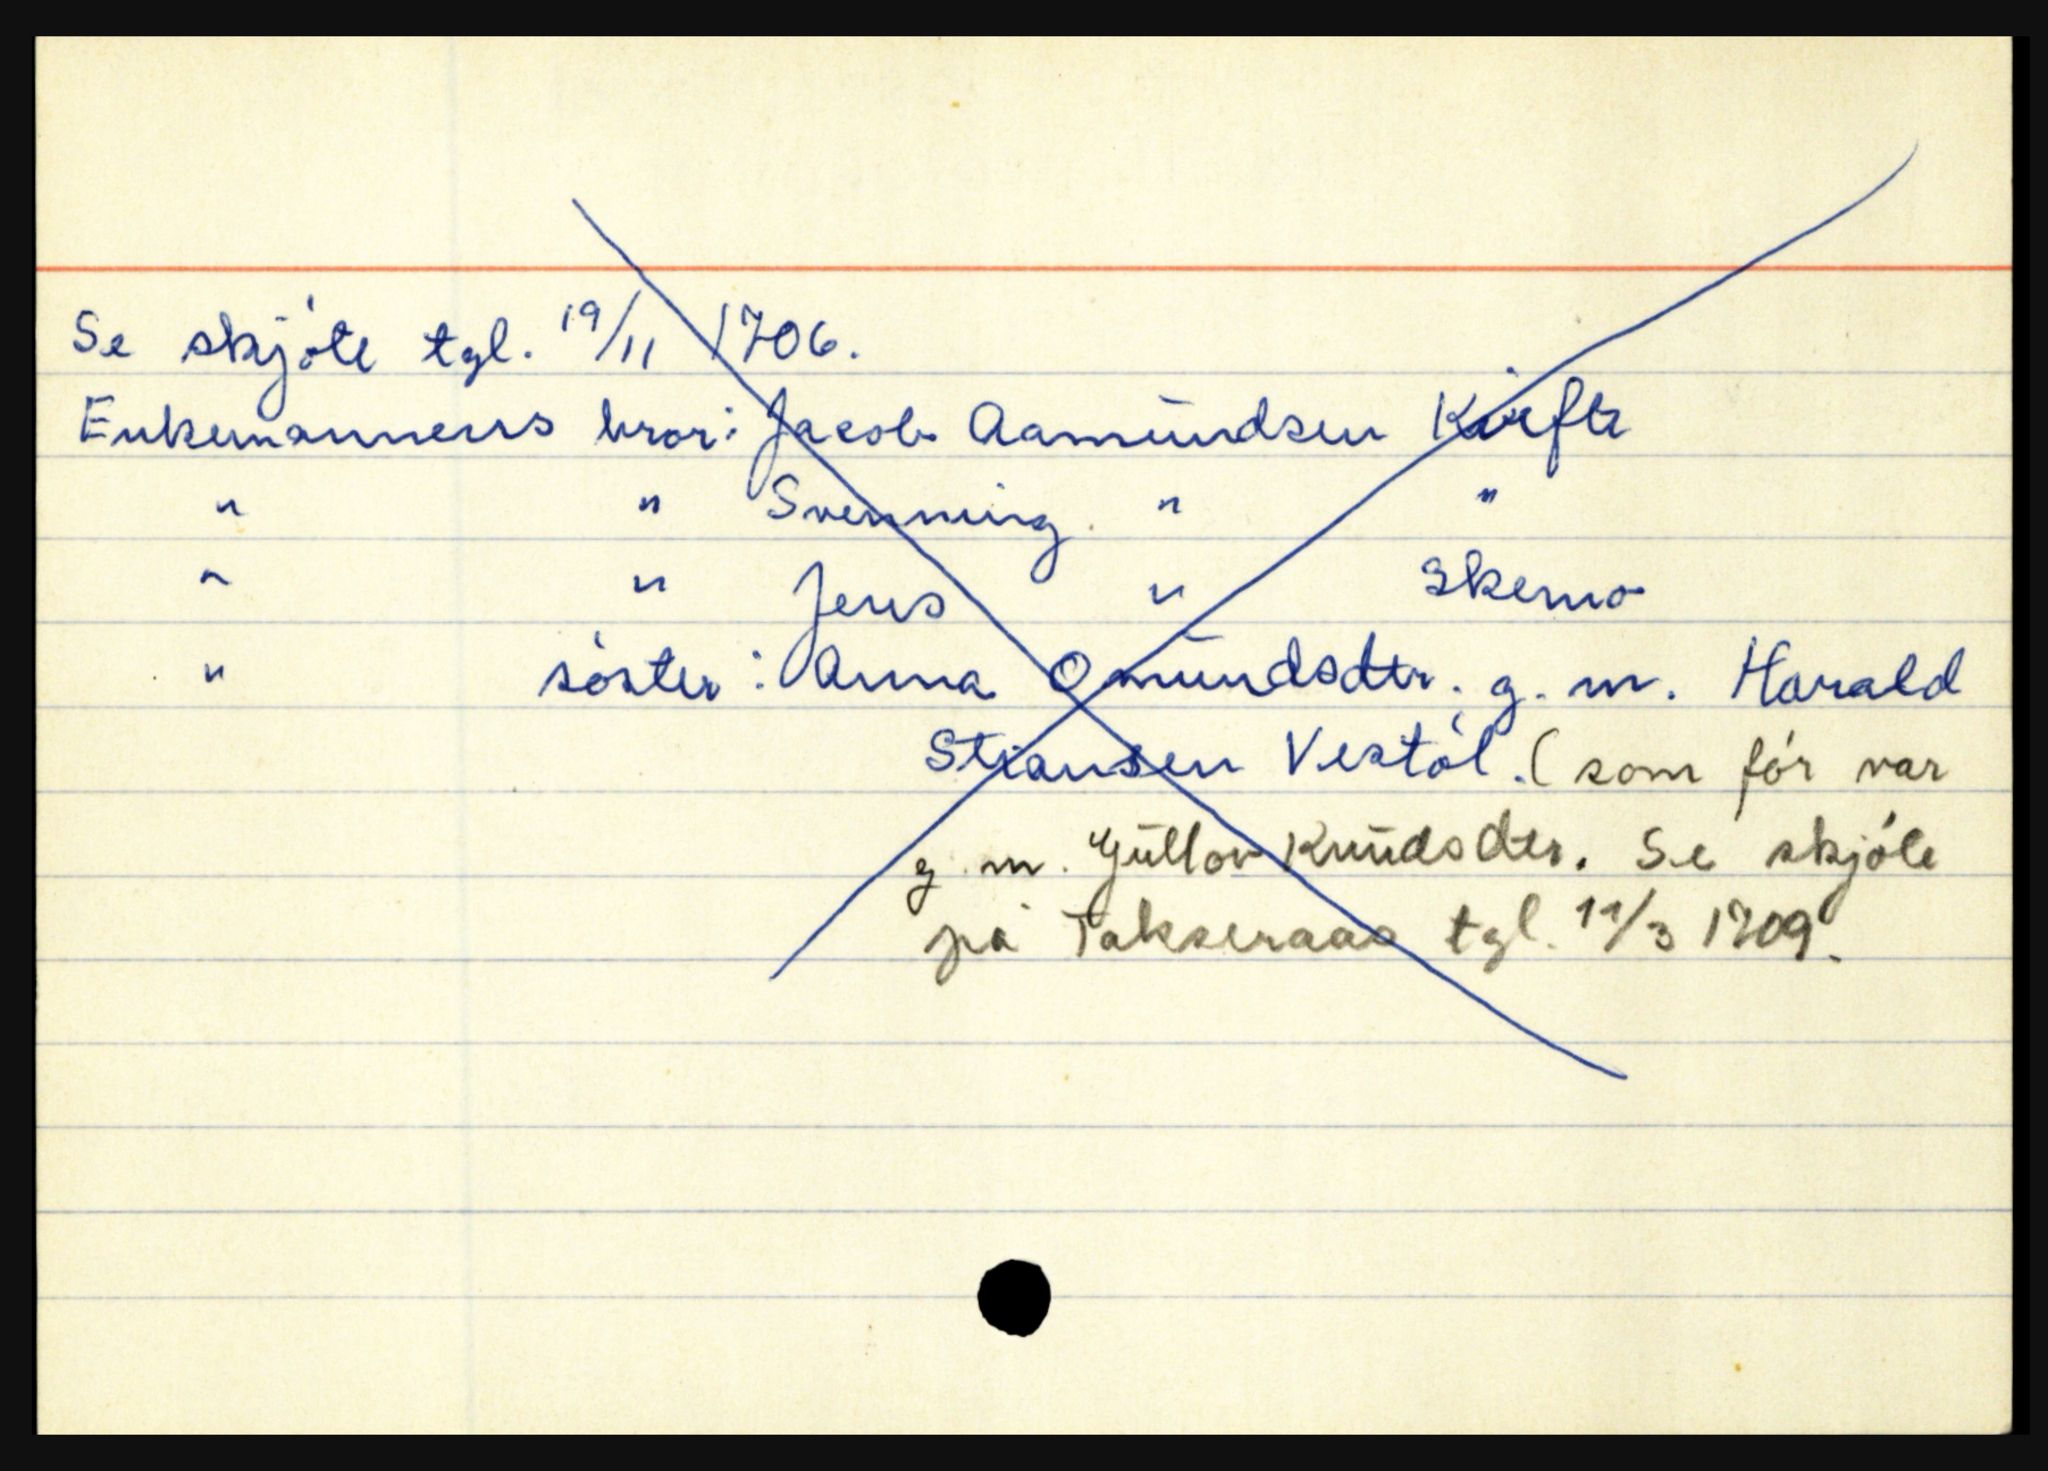 Se skjöte tgl. 19/11 1706.
Enkemannens bror: Jacob Aamündsen
" " Svenning " "
" " Jens " Skemo
" söster: Anna Omündsdtr. g. m. Harald
Stiansen Vestöl. (som för var
g. m. Güllov Knüdsdtr. Se skjöte
på Takseraas tgl. 11/3 1709.